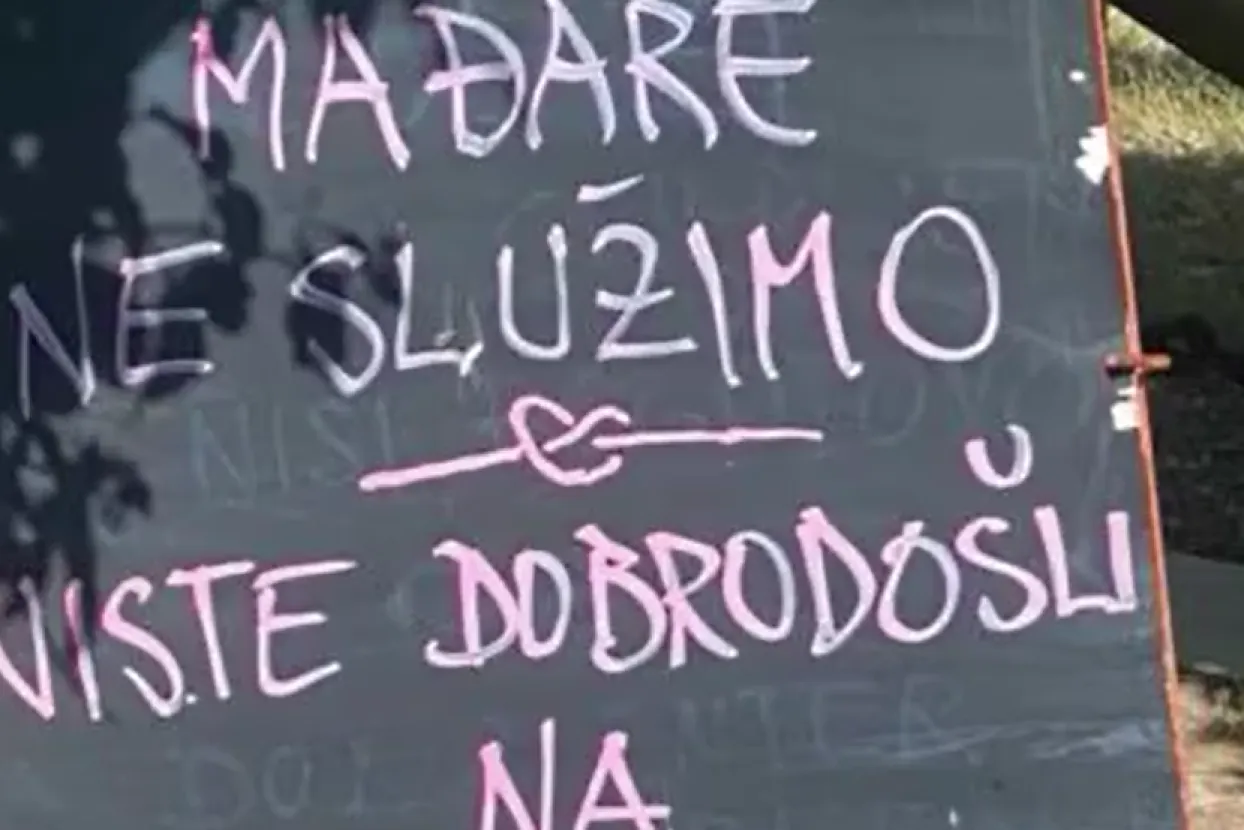 MAĐARE
NE SLUŽIMO
NISTE DOBRODOŠLI
NA